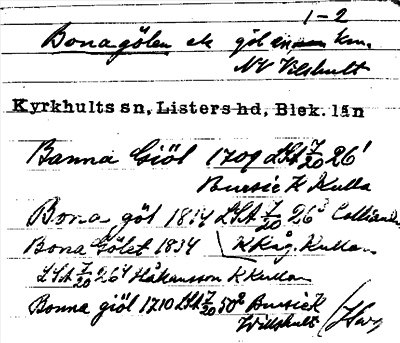 1-2
Bonagölen ek göl Km.
NV Vilshult
Kyrkhults sn, Listers hd, Blek. län
Banna Giöl 1709 LSA 7/20 26¹
Bursie K Kulla
Bona göl 1834 LSA 7/20 26³
Bona Gölet 1834 K Råg. Kullan
LSA 7/20 26⁴ Håkansson K Kullan
Bonna giöl 1710 LSA 7/20 50² Bursie K
Willshult